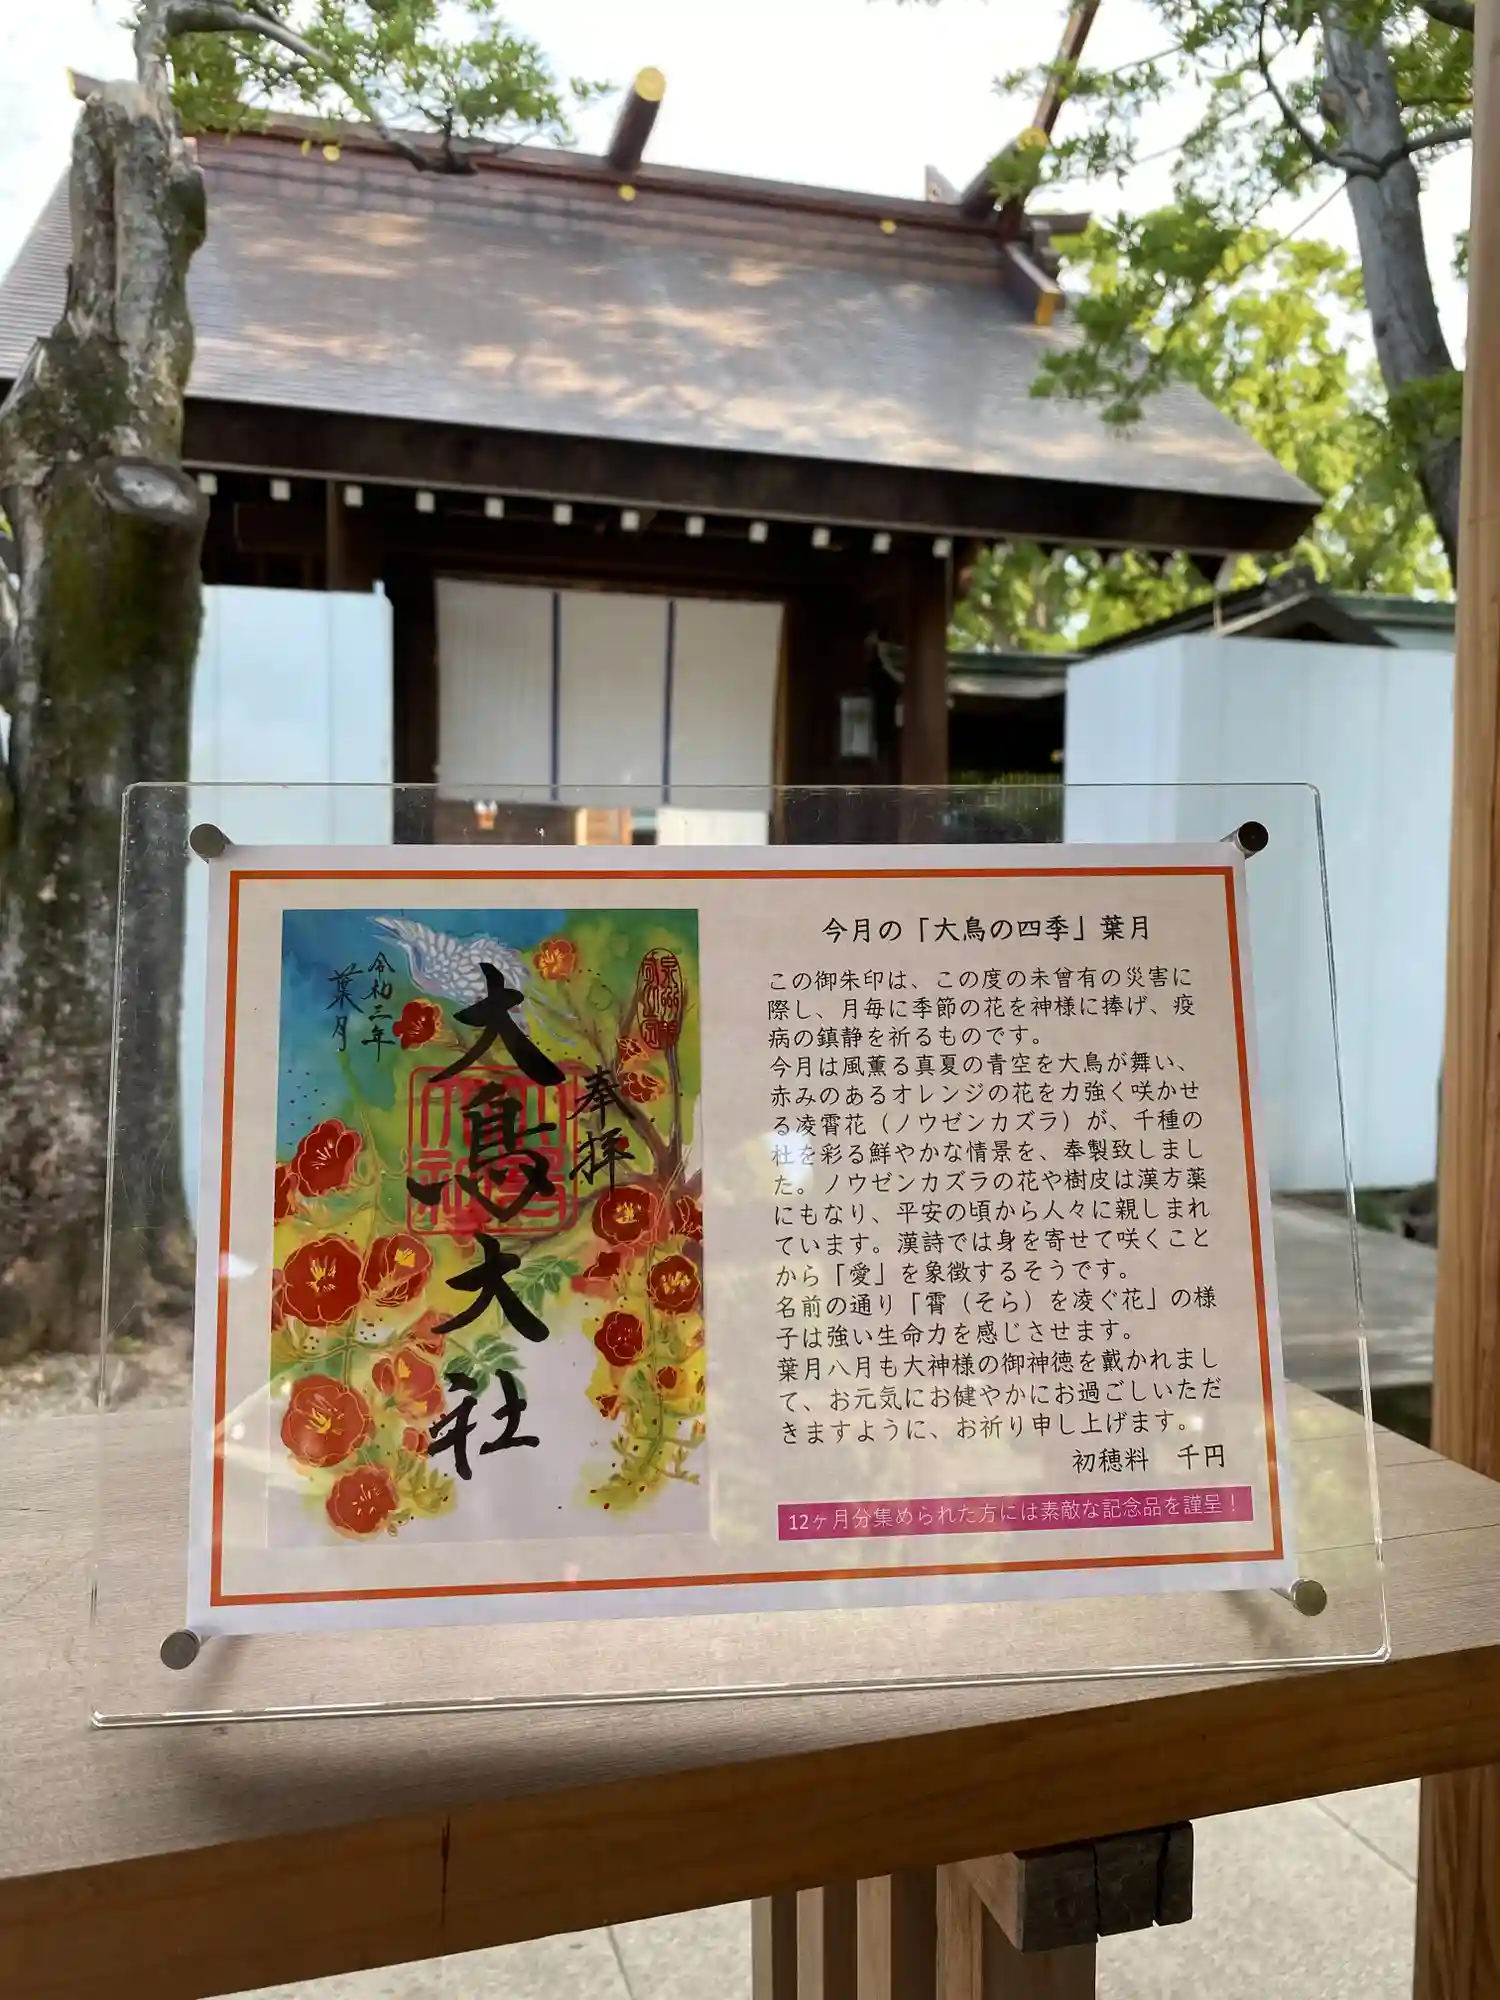 今月の「大鳥の四季」葉月
この御朱印は、この度の未曾有の災害に
際し、月毎に季節の花を神様に捧げ、疫
病の鎮静を祈るものです。
今月は風薫る真夏の青空を大鳥が舞い、
赤みのあるオレンジの花を力強く咲かせ
る凌霄花（ノウゼンカズラ）が、千種の
杜を彩る鮮やかな情景を、奉製致しまし
た。ノウゼンカズラの花や樹皮は漢方薬
にもなり、平安の頃から人々に親しまれ
ています。漢詩では身を寄せて咲くこと
から「愛」を象徴するそうです。
名前の通り「霄（そら）を凌ぐ花」の様
子は強い生命力を感じさせます。
葉月八月も大神様の御神徳を戴かれまし
て、お元気にお健やかにお過ごしいただ
きますように、お祈り申し上げます。
初穂料　千円
12ヶ月分集められた方には素敵な記念品を謹呈！
奉拝
大鳥大社
令和三年
葉月